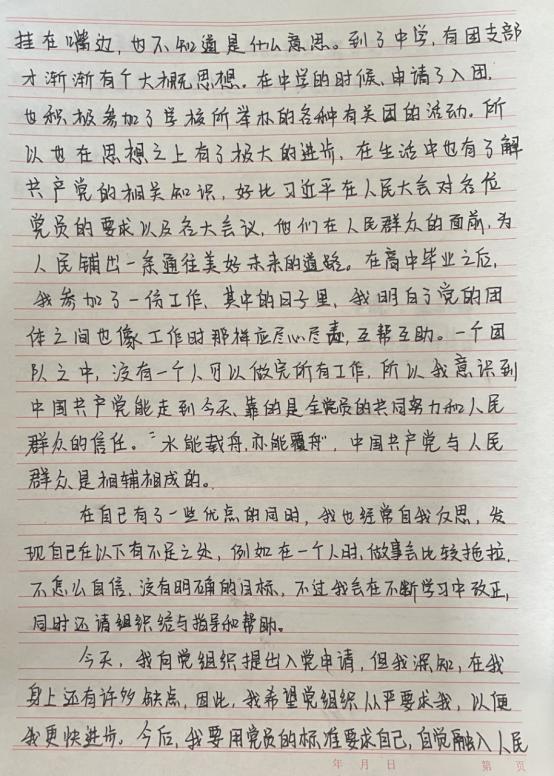 挂在嘴边,也不知道是什么意思。到了中学,有团支部
才渐渐有个大概思想。在中学的时候、申请了入团,
也积极参加了学校所举办的各种有关团的活动。所
以也在思想之上有了极大的进步,在生活中也有了解
共产党的相关知识,好比习近平在人民大会对各位
党员的要求以及各大会议,他们在人民群众的面前,为
人民铺出一条通往美好未来的道路。在高中毕业之后,
我参加了一份工作,其中的日子里,我明白了党的团
体之间也像工作时那样应尽心尽责,互帮互助。一个团
队之中,没有一个人可以做完所有工作,所以我意识到
中国共产党能走到今天、靠的是全党员的共同努力和人民
群众的信任。“水能载舟,亦能覆舟”,中国共产党与人民
群众是相辅相成的。
在自己有了一些优点的同时,我也经常自我反思,发
现自己在以下有不足之处,例如在一个人时,做事会比较拖拉,
不怎么自信、没有明确的目标,不过我会在不断学习中改正,
同时还请组织给与指导和帮助。
今天,我向党组织提出入党申请,但我深知,在我
身上还有许多缺点,因此,我希望党组织从严要求我,以便
我更快进步。今后,我要用党员的标准要求自己,自觉融入人民
年 月 日 第 页